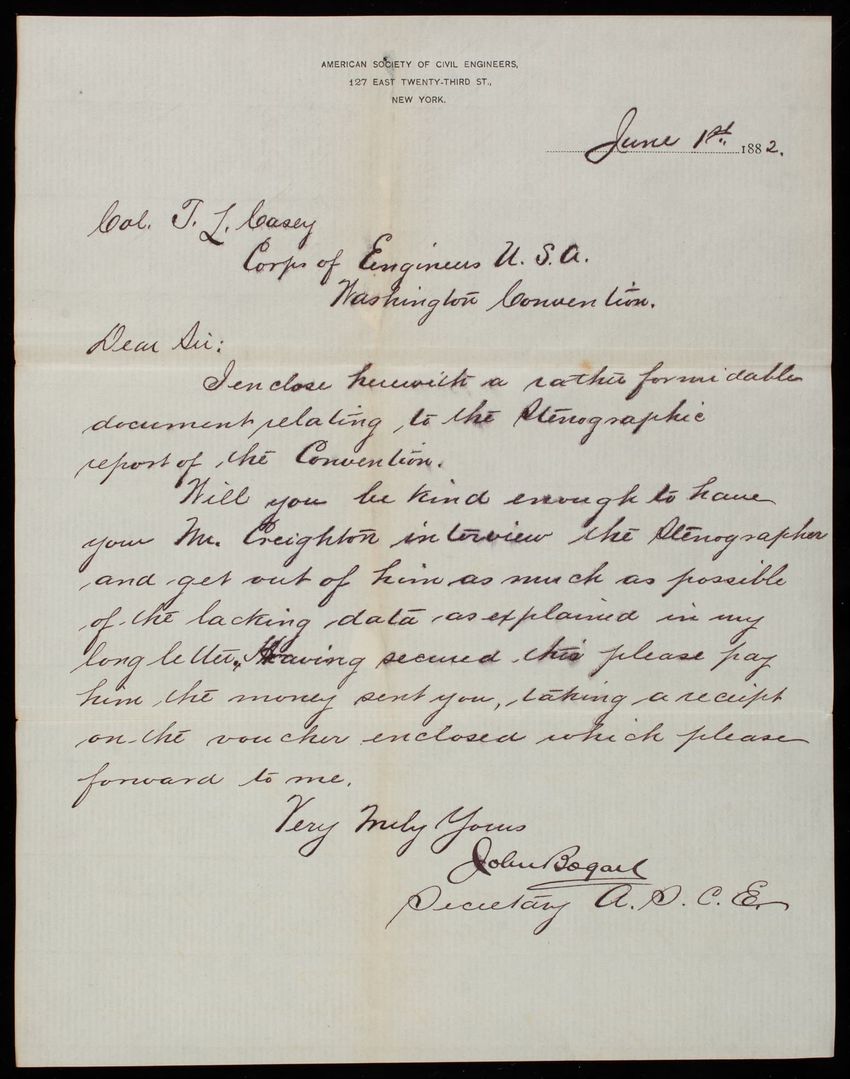 AMERICAN SOCIETY OF CIVIL ENGINEERS,
127 EAST TWENTY-THIRD ST.,
NEW YORK.
June 1st. 1882.
Col. T. L. Casey
Corps of Engineers U. S. A.
Washington Convention.
Dear Sir:
I enclose herewith a rather formidable
document relating to the Stenographic
report of the Convention.
Will you be kind enough to have
your Mr. Creighton interview the Stenographer
and get out of him as much as possible
of the lacking data as explained in my
long letter. Having secured this please pay
him the money sent you, taking a receipt
on the voucher enclosed which please
forward to me.
Very Truly Yours
John Bogart
Secretary A. S. C. E.